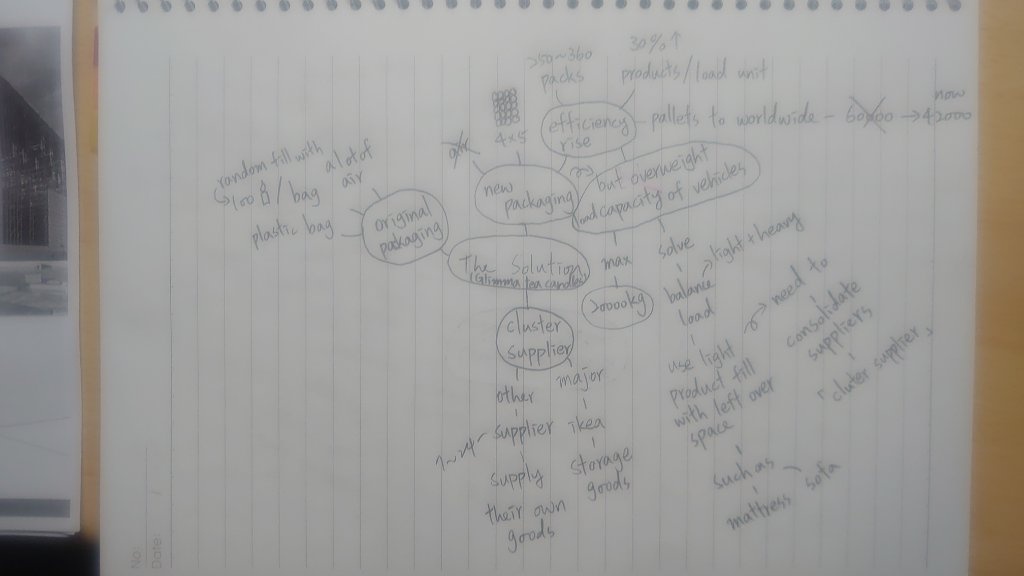 250~360
packs
30%↑
products/load unit
efficiency
rise
pallets to worldwide - 60000 → now
42000
4×5
air
new
packaging
but overweight
load capacity of vehicles
random fill with
100 / bag
a lot of
air
plastic bag
original
packaging
The Solution
(Glimma tea candles)
max
20000kg
solve
balance
load
light + heavy
use light
product fill
with left over
space
such as
mattress
sofa
need to
consolidate
suppliers
「cluter supplier」
cluster
supplier
other
supplier
1~4
supply
their own
goods
major
ikea
storage
goods
No:
Date: